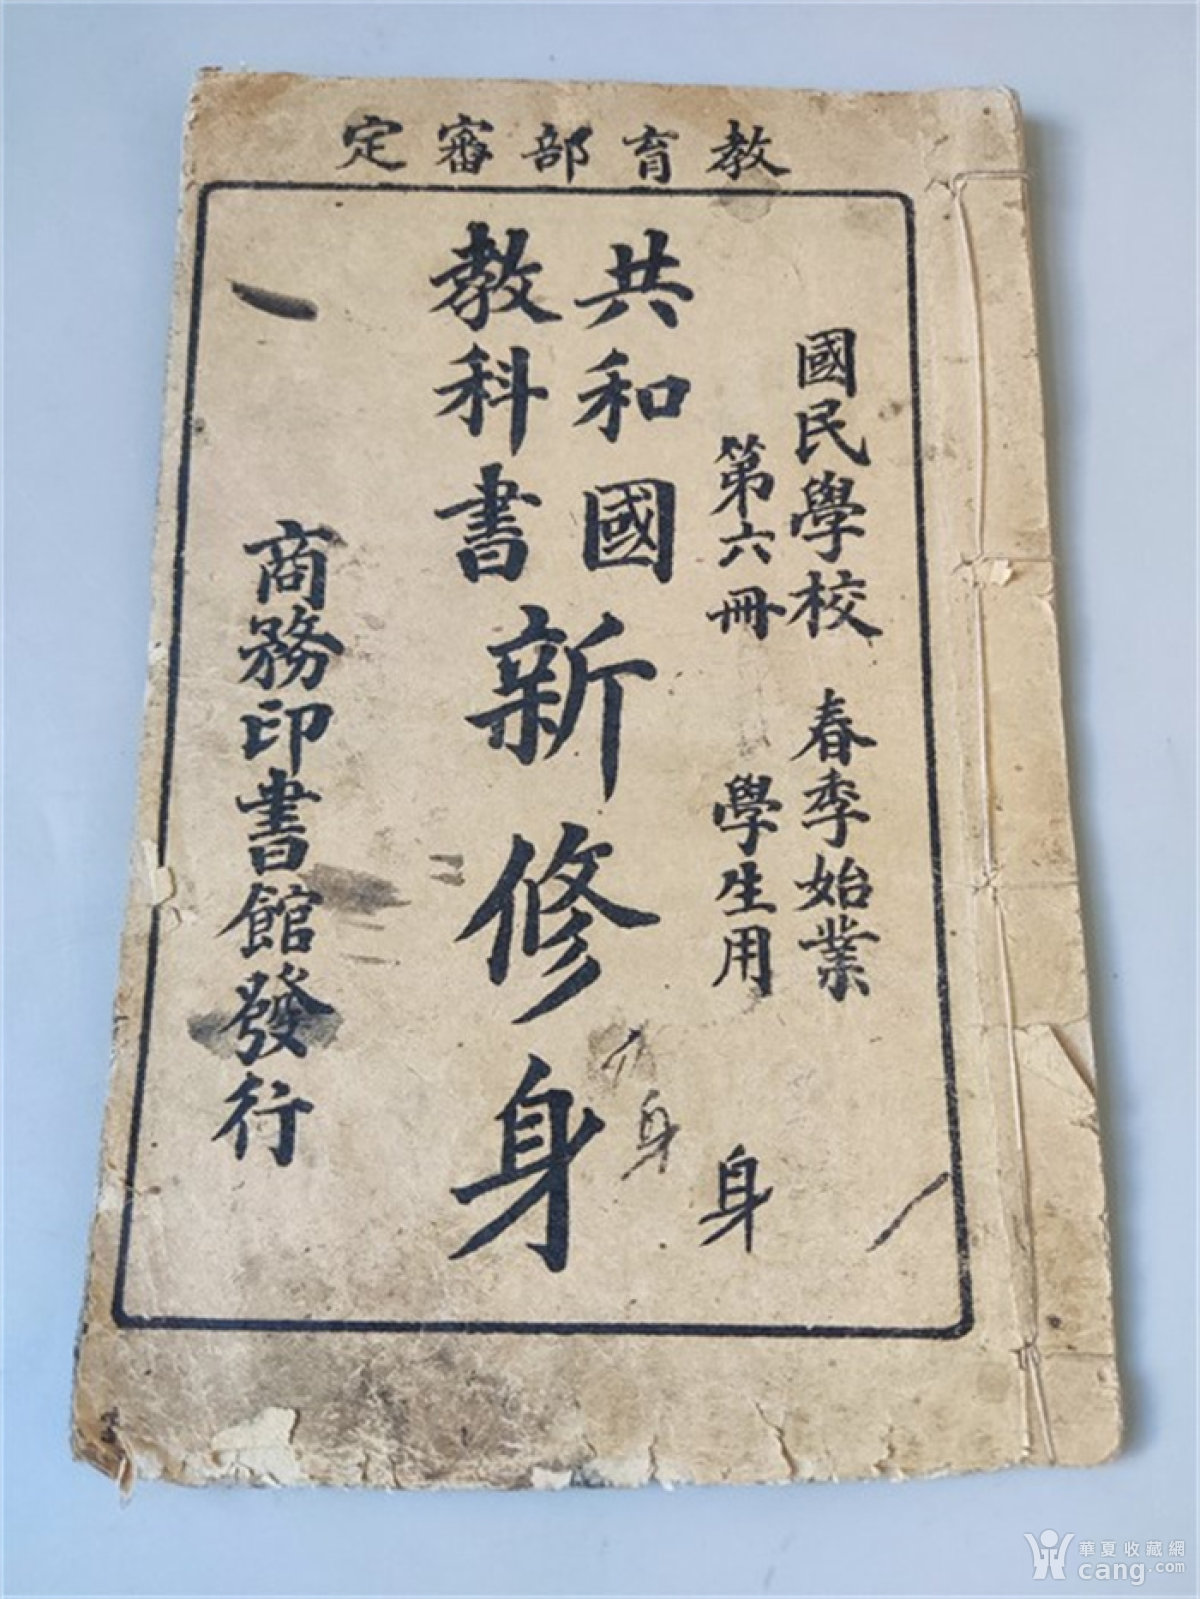 教育部審定
國民學校 春季始業
第六冊 學生用
共和國
教科書
新修身
商務印書館發行
身
身
華夏收藏網
cang.com